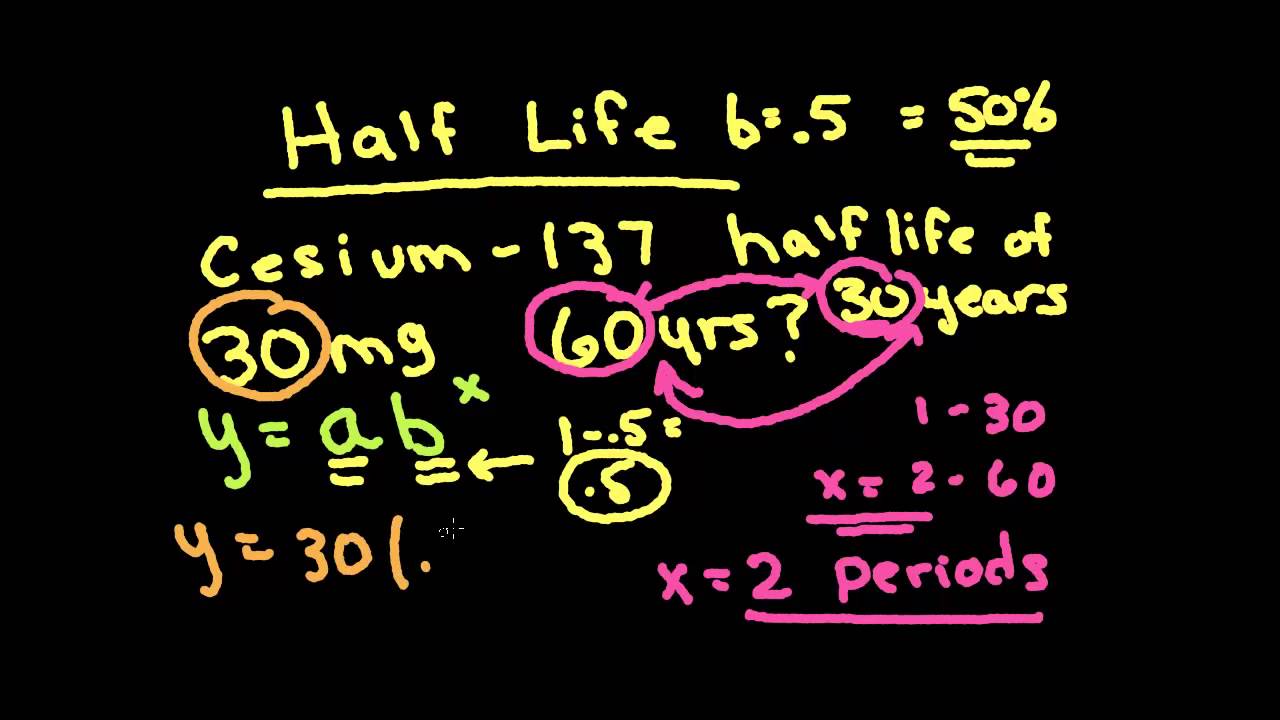 Half Life b=.5 = 50%
Cesium-137 half life of
30 mg 60 yrs? 30 years
y = ab^x 1-.5=
.5
1-30
x=2-60
y=30(.
x=2 periods